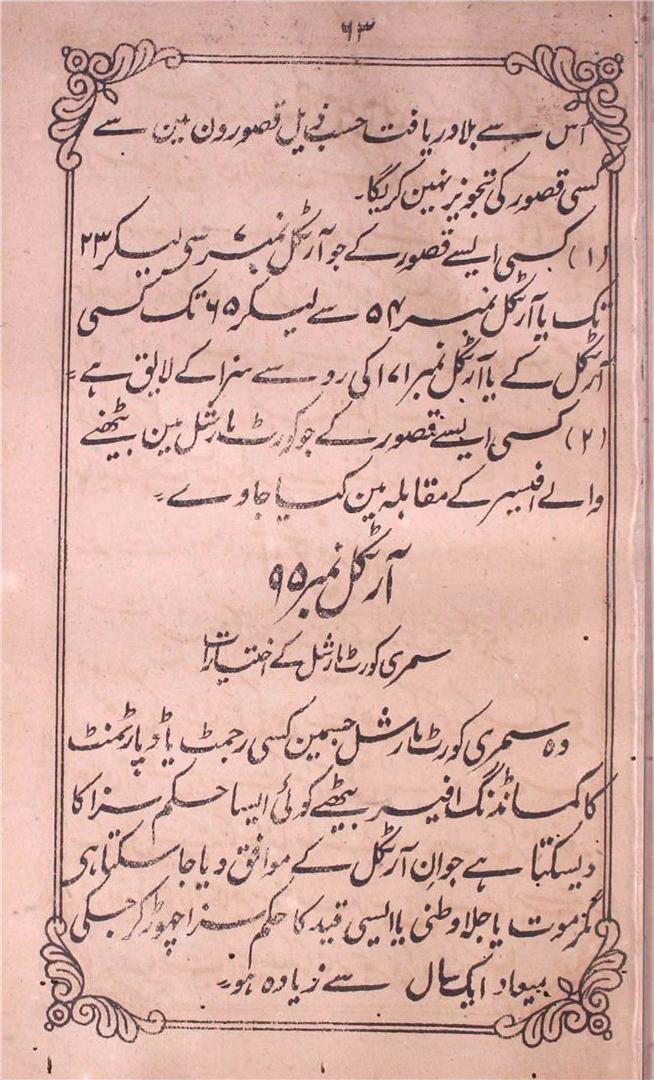 ۶۳
اس سے بلا دریافت حسب ذیل قصورون مین سے
کسی قصور کی تجویز نہین کریگا۔
(۱) کسی ایسے قصور کے جو آرٹکل نمبر ۷ سی لیکر ۲۳
تک یا آرٹکل نمبر ۵۴ سے لیکر ۶۵ تک کسی
آرٹکل کے یا آرٹکل نمبر ۱۷۱ کی رو سے سزا کے لایق ہے۔
(۲) کسی ایسے قصور کے جو کورٹ مارشل مین بیٹھنے
والے افیسر کے مقابلہ مین کیا جاوے۔
آرٹکل نمبر ۹۵
سمری کورٹ مارشل کے اختیارات
وہ سمری کورٹ مارشل جسمین کسی رجمٹ یا ڈپارٹمنٹ
کا کمانڈنگ افیسر بیٹھے کوئی ایسا حکم سزا کا
دیسکتا ہے جو ان آرٹکل کے موافق دیا جا سکتا ہی
مگر موت یا جلا وطنی یا ایسی قید کا حکم سزا چھوڑ کر جسکی
میعاد ایک سال سے زیادہ ہو۔